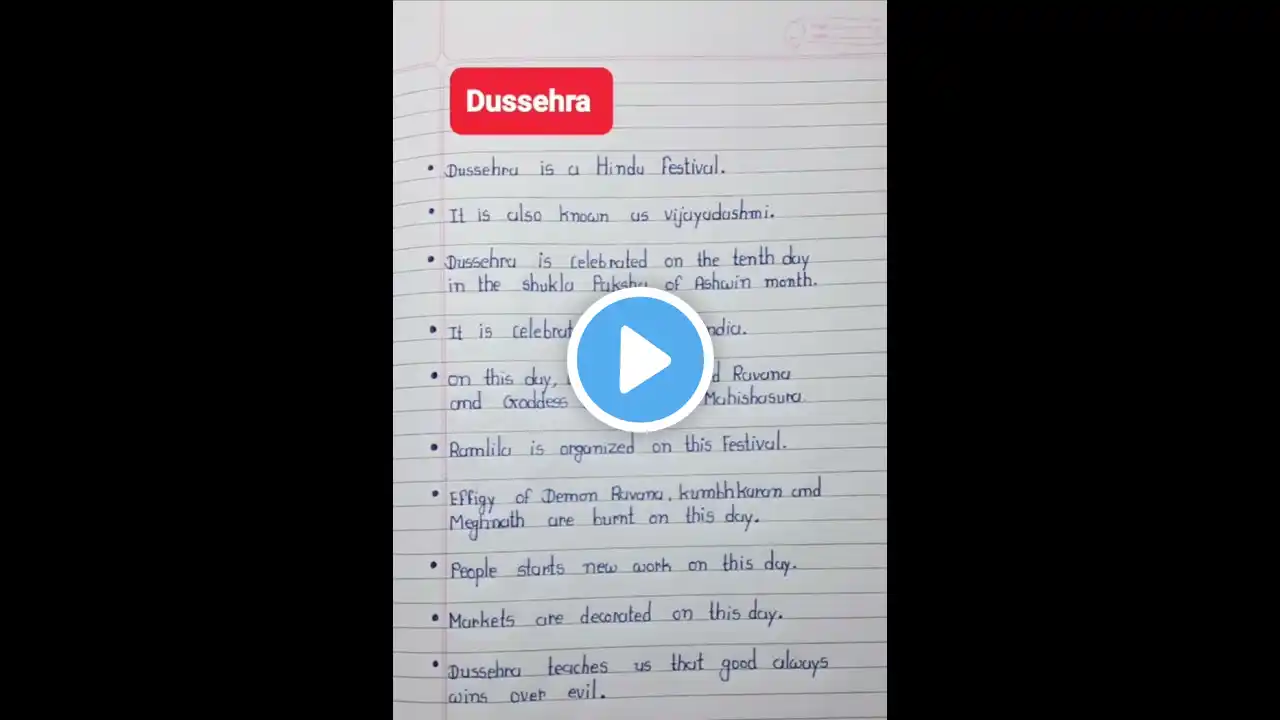 Dussehra
• Dussehra is a Hindu Festival.
• It is also known as vijayadashmi.
• Dussehra is celebrated on the tenth day
in the shukla Paksha of Ashwin month.
• It is
• on this day, Ravana
and Goddess Mahishasura
• Ramlila is organized on this Festival.
• Effigy of Demon Ravana, kumbhkaran and
Meghnath are burnt on this day.
• People starts new work on this day.
• Markets are decorated on this day.
• Dussehra teaches us that good always
wins over evil.